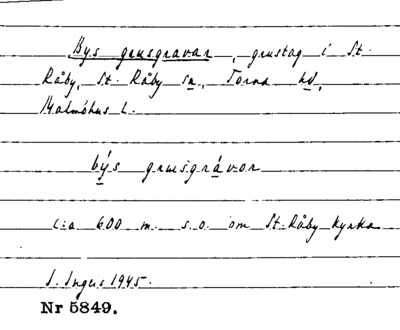 Bys grusgravar, grustag i St.
Råby, St. Råby sn, Torna hd,
Malmöhus l.
býs grusgrávor
c:a 600 m. s.o. om St. Råby kyrka
S. Ingus 1945.
Nr 5849.